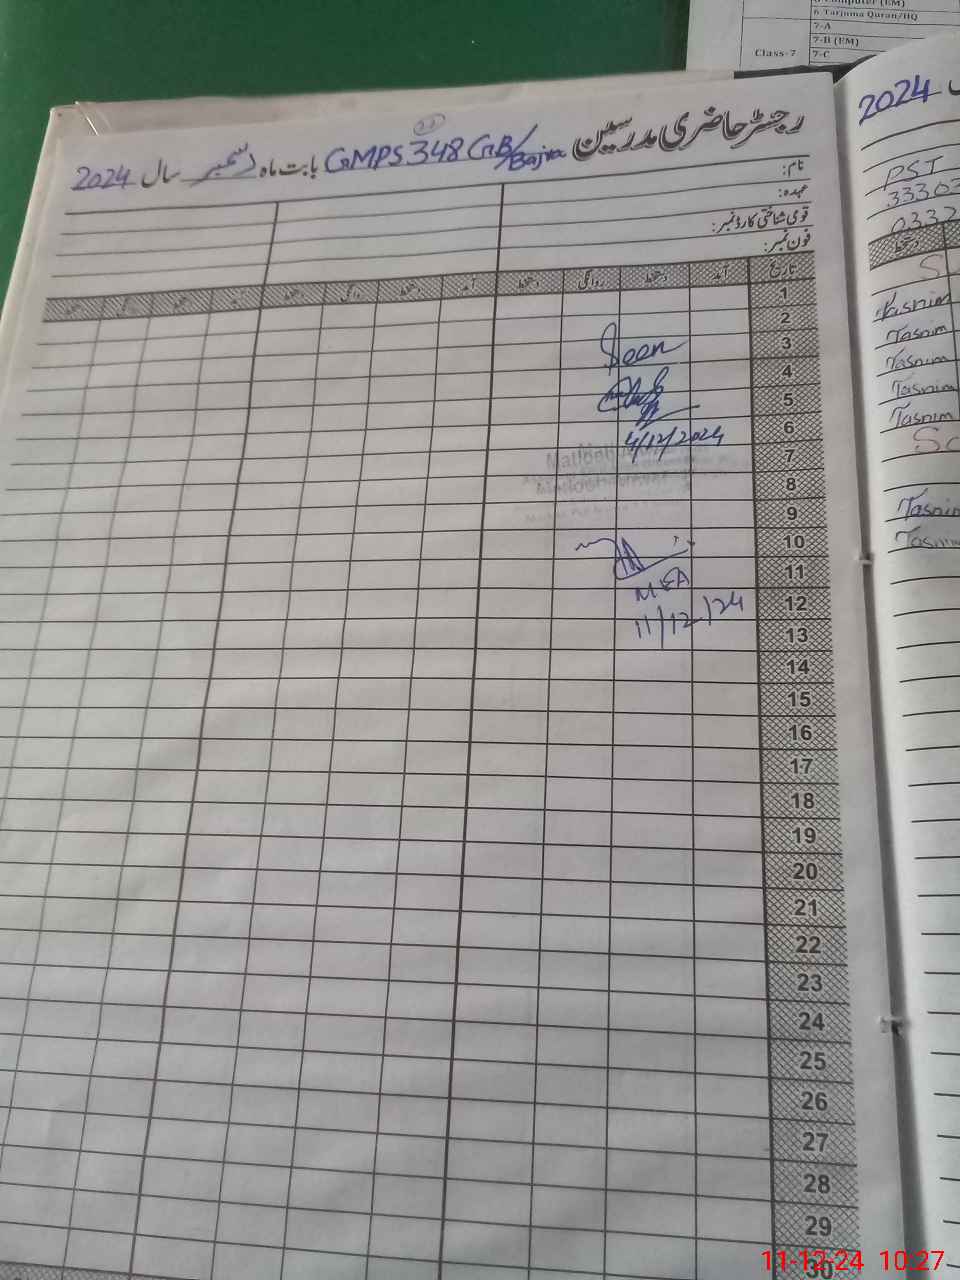 6 Computer (EM)
6 Tarjuma Quran/HQ
7-A
Class-7
7-B (EM)
7-C
رجسٹر حاضری مدرسین GMPS 348 GB/Bajwa بابت ماہ دسمبر سال 2024
نام:
عہدہ:
قومی شناختی کارڈ نمبر:
فون نمبر:
تاریخ آمد دستخط روانگی دستخط آمد دستخط روانگی دستخط آمد دستخط روانگی دستخط
1
2
3
Seen
4
5
6
4/12/2024
7
8
9
10
11
MEA
12
11/12/24
13
14
15
16
17
18
19
20
21
22
23
24
25
26
27
28
29
30
2024
PST
33303
0332
دستخط
Tasnim
Tasnim
Tasnim
Tasnim
Tasnim
Tasnim
Tasnim
11-12-24 10:27